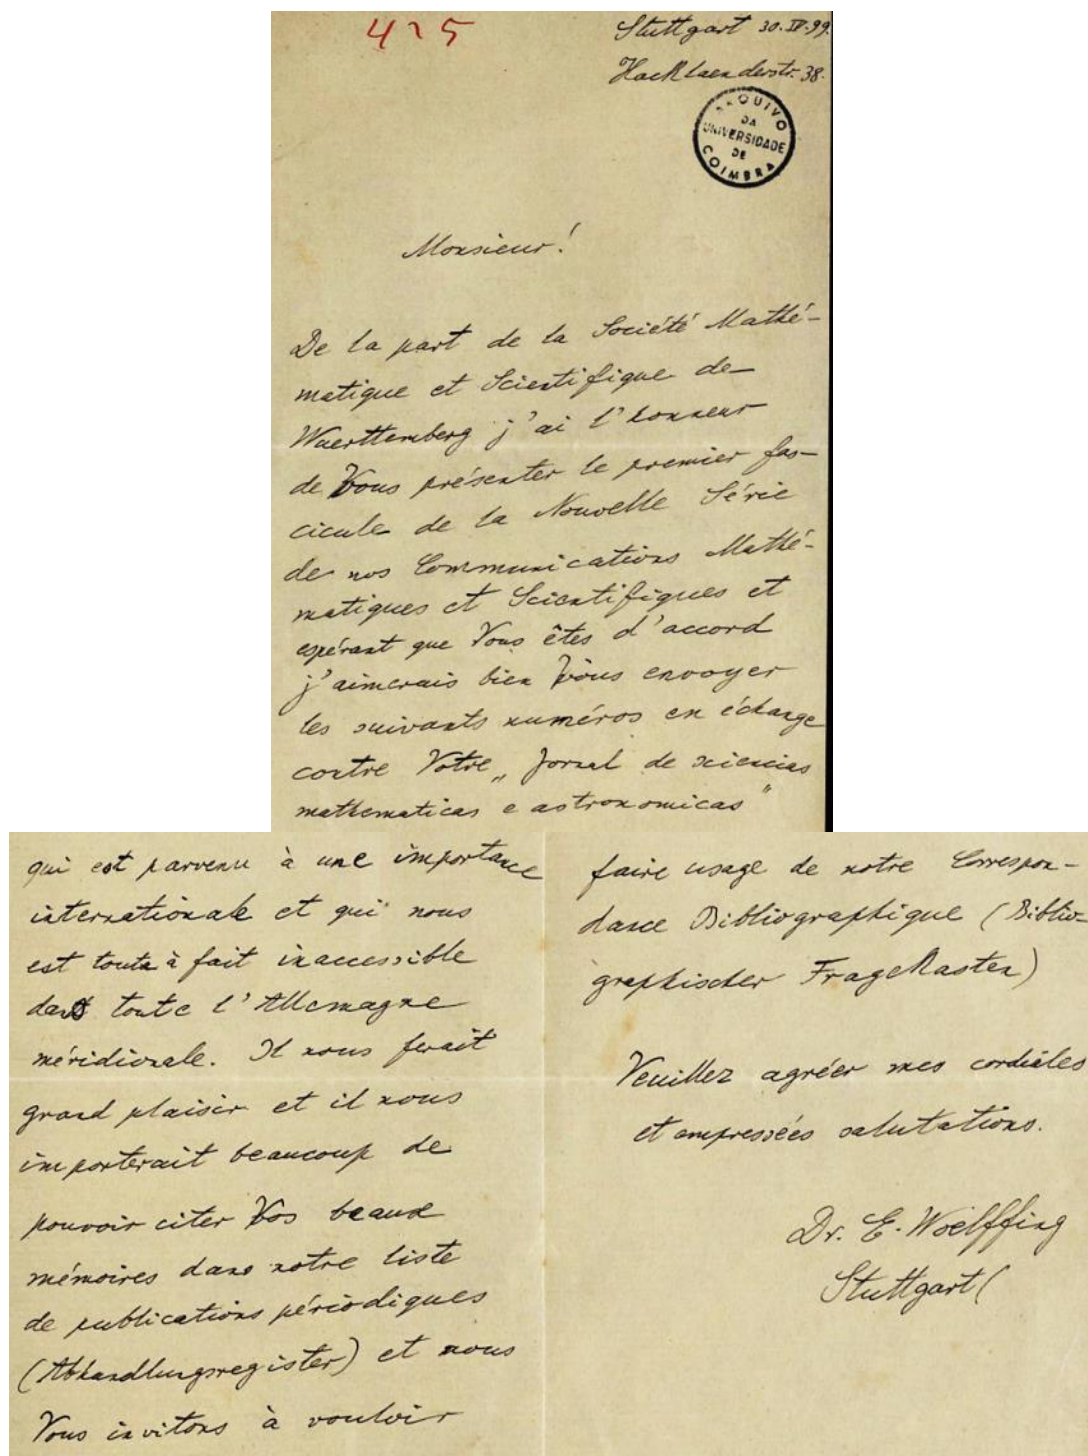 425
Stuttgart 30.IV.99.
Hacklaenderstr. 38.
ARQUIVO
DA
UNIVERSIDADE
DE
COIMBRA
Monsieur!
De la part de la Société Mathé-
matique et Scientifique de
Wuerttemberg j'ai l'honneur
de Vous présenter le premier fas-
cicule de la Nouvelle Série
de nos Communications Mathé-
matiques et Scientifiques et
espérant que Vous êtes d'accord
j'aimerais bien Vous envoyer
les suivants numéros en échange
contre Votre „Jornal de sciencias
mathematicas e astronomicas"
qui est parvenu à une importance
internationale et qui nous
est tout à fait inaccessible
dans toute l'Allemagne
méridionale. Il nous ferait
grand plaisir et il nous
importerait beaucoup de
pouvoir citer Vos beaux
mémoires dans notre liste
de publications périodiques
(Abhandlungsregister) et nous
Vous invitons à vouloir
faire usage de notre Correspon-
dance Bibliographique (Biblio-
graphischer Fragekasten)
Veuillez agréer mes cordiales
et empressées salutations.
Dr. E. Woelffing
Stuttgart